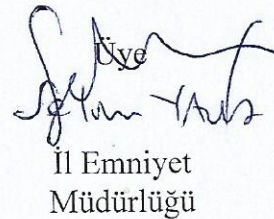 Üye
İl Emniyet
Müdürlüğü